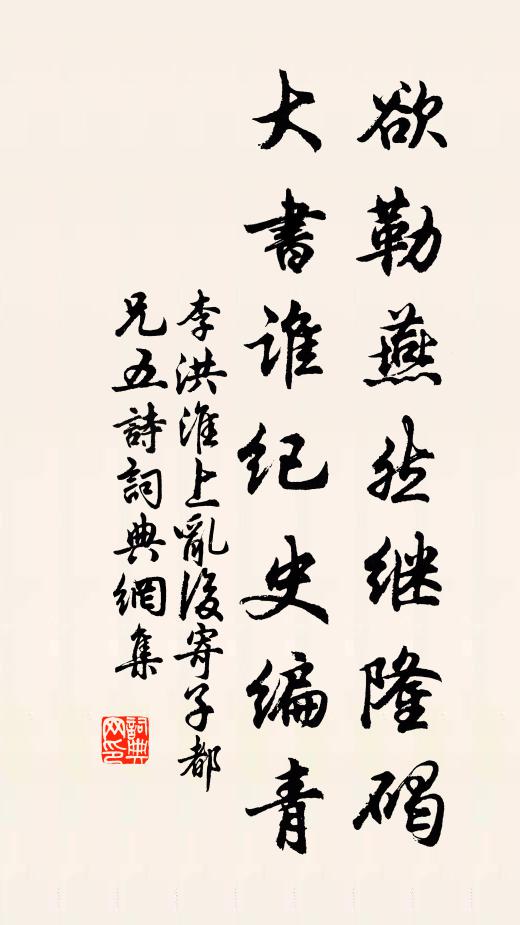 欲勒燕然继隆碣
大书谁纪史编青
李洪淮上亂後寄子都
兄五詩詞典網集
詞典網印